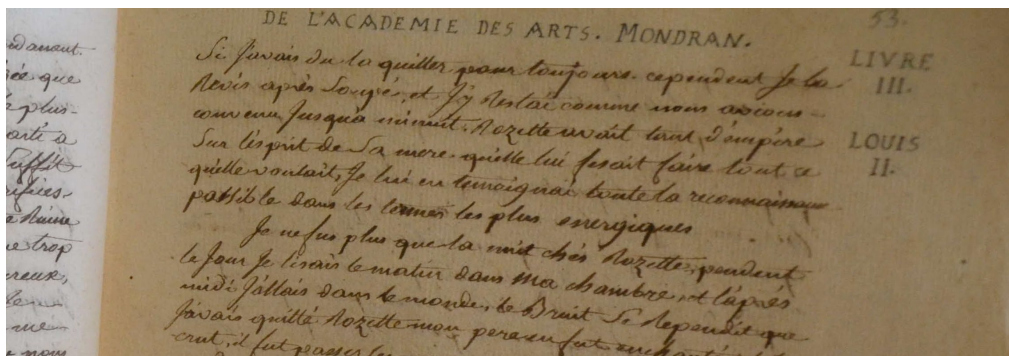 DE L'ACADEMIE DES ARTS. MONDRAN.
53.
LIVRE
III.
LOUIS
II.
Si J'avais du la quitter pour toujours. cependent Je la
Revis après Soupé, et J'y Restai comme nous avions
convenu Jusqu'à minuit. Rozette avait tant d'empire
Sur l'esprit de Sa mere quelle lui fesait faire tout ce
qu'elle voulait, Je lui en temoignai toute la reconnaissance
possible dans les termes les plus energiques
Je ne fus plus que la nuit chés Rozette, pendent
le Jour Je lisais le matin dans ma chambre, et l'après
midi J'allais dans le monde, le Bruit Se Rependit que
J'avais quitté Rozette mon pere en fut enchanté
crut, il fut
que
plus-
Suffit
Reine
trop
reux,
me
nous